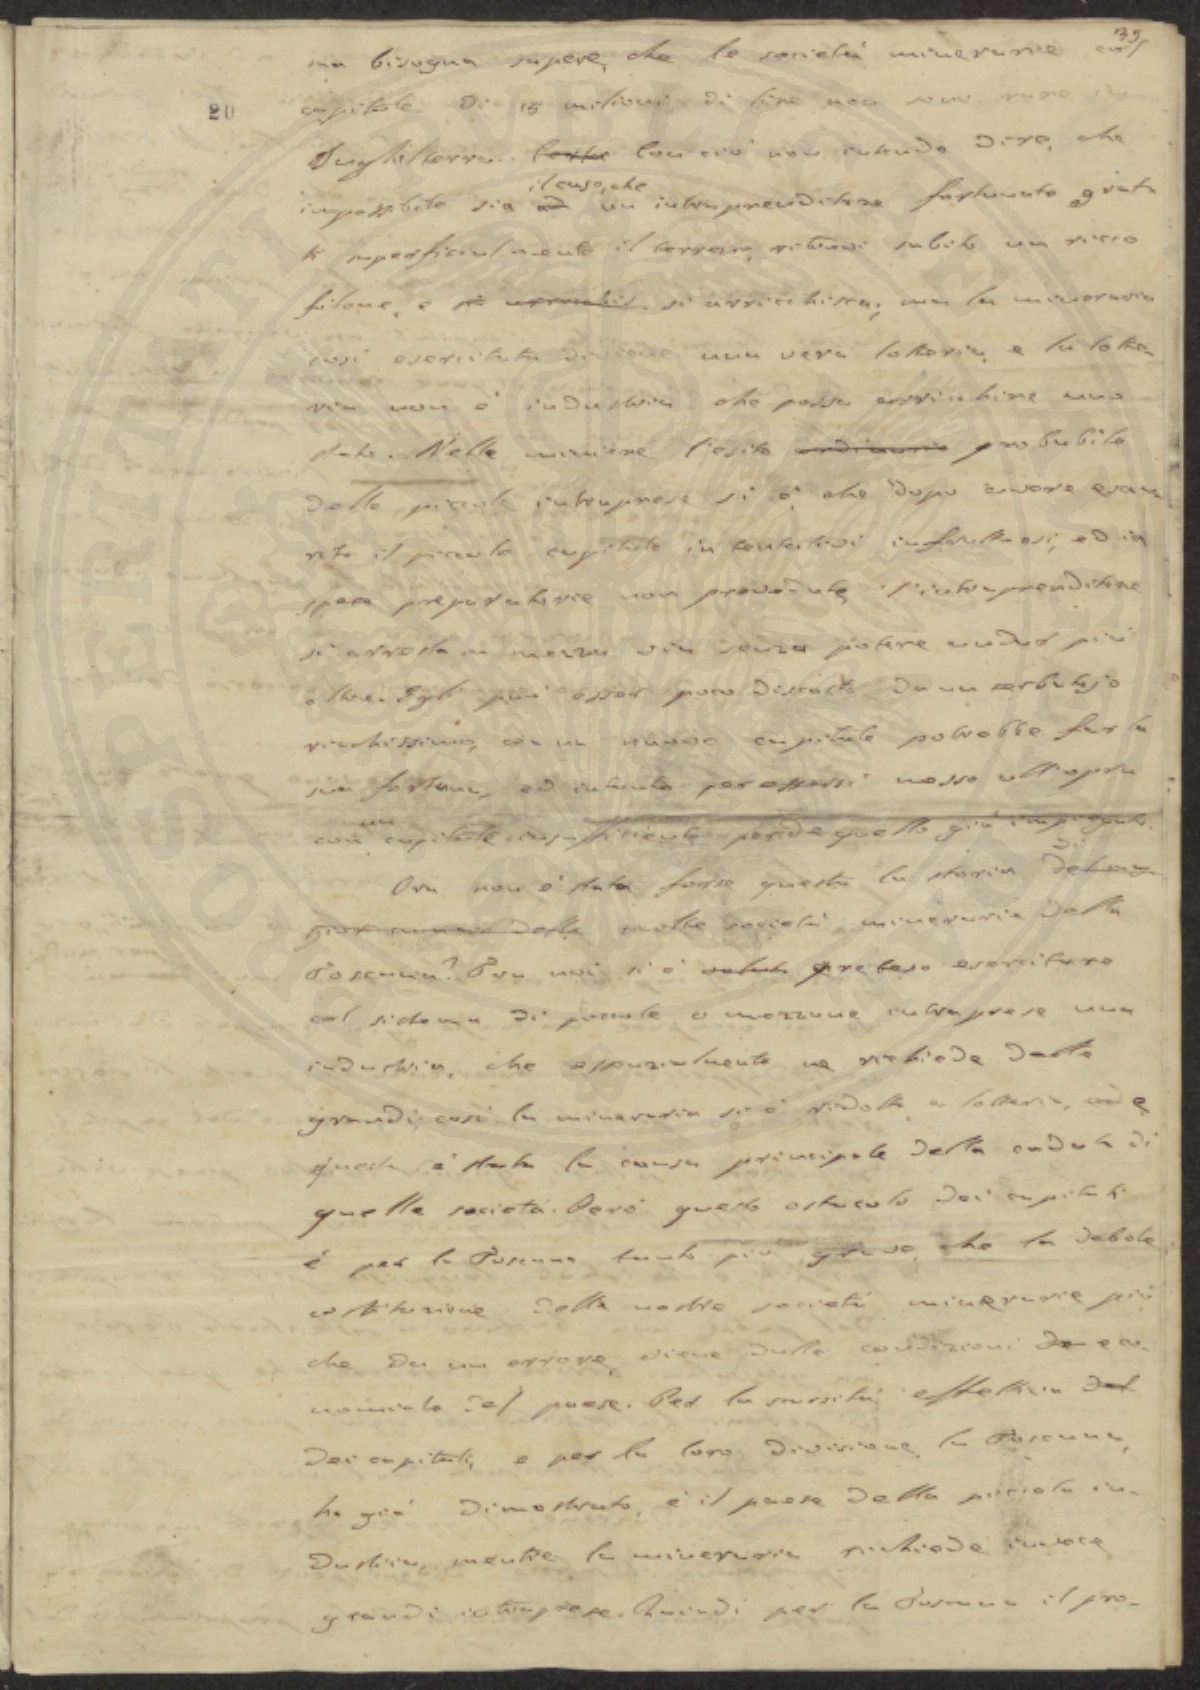 39
ma bisogna sapere, che le società minerarie col
20
capitale di 15 milioni di lire non sono rare in
Inghilterra. Certo Con ciò non intendo dire, che
il caso, che
impossibile sia ad un intraprenditore fortunato gratti
superficialmente il terreno, ritrovi subito un ricco
filone, e si arrichis. si arricchisca; ma la mineraria
così esercitata diviene una vera lotteria, e la lotte-
ria non è industria che possa arricchire uno
stato. Nelle miniere l'esito ordinario probabile
delle piccole intraprese si è, che dopo avere esau-
rito il piccolo capitale in tentativi infruttuosi, ed in
spese preparatorie non provedute, l'intraprenditore
si arresta a mezza via senza potere andar più
oltre. Egli può esser poco discosto da un serbatojo
ricchissimo, con un nuovo capitale potrebbe far la
sua fortuna, ed intanto per essersi messo all'opra
un
con capitale insufficiente perde quello già impiegato.
di
Ora non è stata forse questa la storia del mag-
gior numero delle molte società minerarie della
Toscana? Fra noi si è voluto preteso esercitare
col sistema di piccole o mezzane intraprese una
industria, che essenzialmente ne richiede delle
grandi; così la mineraria si è ridotta a lotteria, ed e
questa è stata la causa principale della caduta di
quelle società. Però questo ostacolo dei capitali
è per la Toscana tanto più grave, che la debole
costituzione delle nostre società minerarie più
che da un errore, viene dalle condizioni de eco-
nomiche del paese. Per la scarsità effettiva del
dei capitali, e per la loro divisione, la Toscana,
ho già dimostrato, è il paese della piccola in-
dustria, mentre la mineraria richiede invece
grandi intraprese. Quindi per la Toscana il pro-